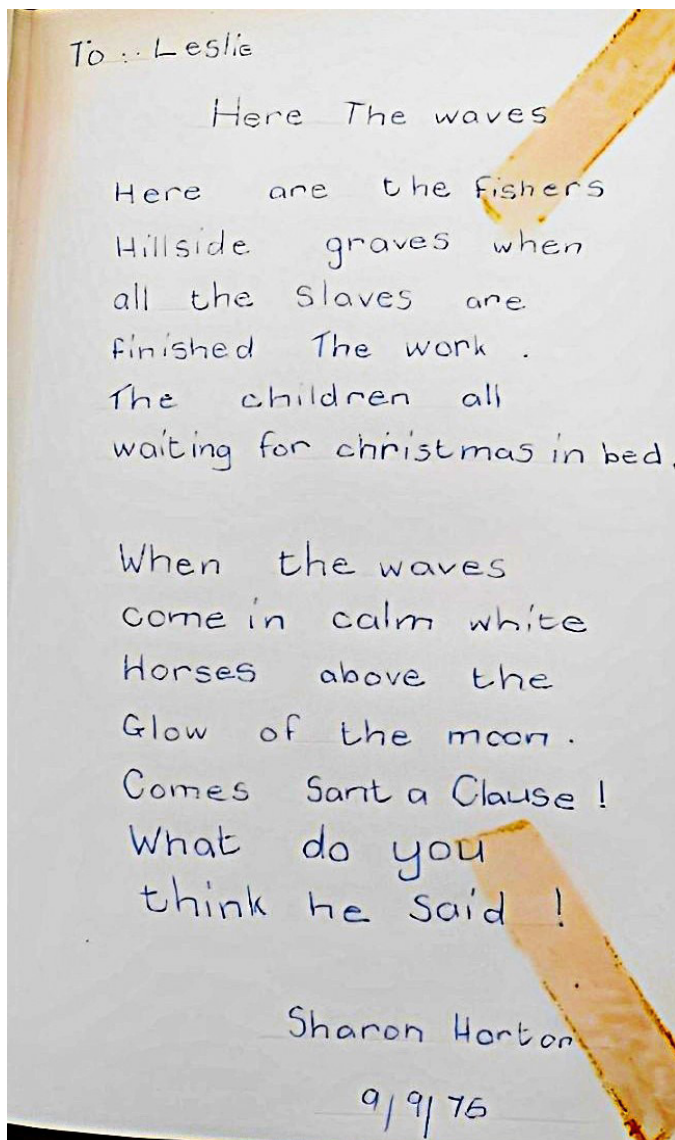 To : Leslie
Here The waves
Here are the fishers
Hillside graves when
all the slaves are
finished The work .
The children all
waiting for christmas in bed.
When the waves
come in calm white
Horses above the
Glow of the moon .
Comes Sant a Clause !
What do you
think he said !
Sharon Horton
9/9/76